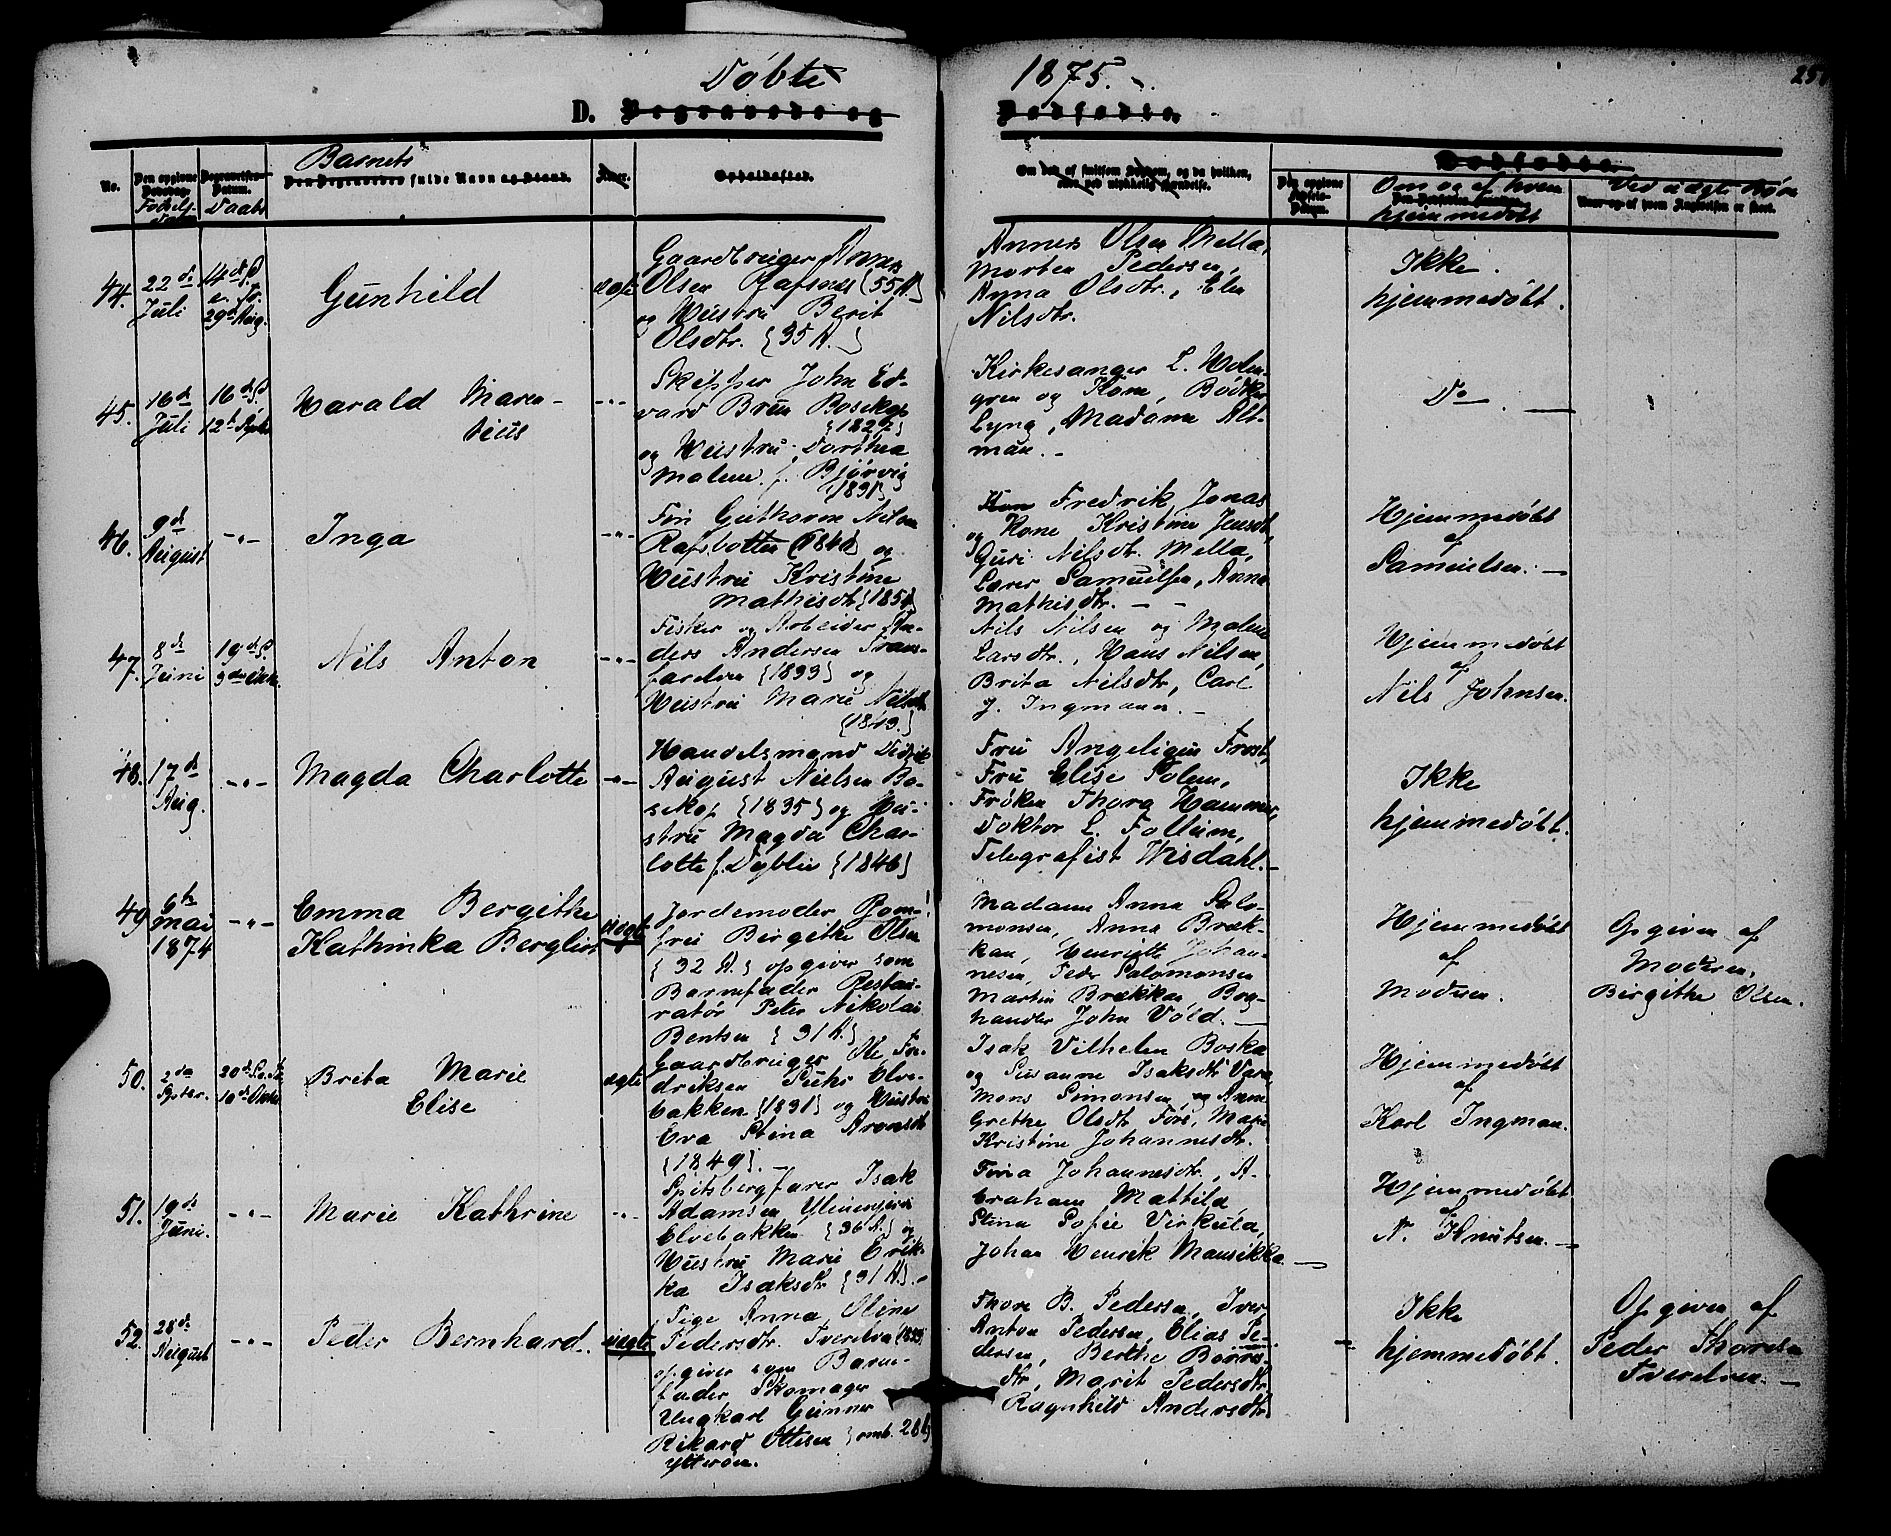 Døbte
1875.
251
D. Begravede og
Dødfødte.
No.
Den opgivne Dødsdag.
Fødsels-
Datum
Begravelses-Datum.
Daabs
Barnets
Den Begravedes fulde Navn og Stand.
Alder.
Opholdssted.
Dødfødte.
Om og af hvem
hjemmedøbt
Ved uægte Børn
Naar og af hvem Anmeldelsen er skeet.
44.
22de
Juli
29de Aug.
Gunhild
ægte
Gaardbruger Annes
Olsen Rafsnes {55 A.}
og Hustru Berit
Olsdtr. {35 A.}
Annes Olsen Mella,
Morten Pedersen,
Anna Olsdtr., Elen
Nilsdtr.
Ikke
hjemmedøbt.
45.
16de
Juli
12te Septbr
Harald Maren-
tius
-"-
Skipper John Ed-
vard Brun Bosekop
{1827}
og Hustru Dorthea
Malene f. Bjørvig
{1831}
Kirkesanger L. Holm-
gren og Kone, Bødker
Lyng, Madame Alt-
man. -
Do -
46.
9de
August
-"-
Inga
-"-
Guthorm Nilsen
Rafsbotten {1841} og
Hustru Kristine
Mathisdtr {1851}
Fredrik Jonas
og Kone Kristine Jensdtr,
Guri Nilsdtr. Mella,
Lærer Samuelsen, Anna
Mathisdtr. -
Hjemmedøbt
af
Samuelsen. -
47.
8de
Juni
3die Oktbr.
Nils Anton
-"-
Fisker og Arbeider An-
ders Andersen Trans-
farelven {1833} og
Hustru Marie Nilsdtr
{1843.}
Nils Nilsen og Malene
Larsdtr., Hans Nilsen,
Brita Nilsdtr, Carl
J. Ingman. -
Hjemmedøbt
af
Nils Johnsen.
48.
17de
Aug.
-"-
Magda Charlotte
-"-
Handelsmand Didrik
August Nielsen Bo-
sekop {1835} og Hu-
stru Magda Char-
lotte f. Dyblie {1846}
Fru Angeligen Frost,
Fru Elise Solem,
Frøken Thora Hammer,
Doktor L. Follum,
Telegrafist Wisdahl. -
Ikke
hjemmedøbt.
49.
6te
Mai
1874
-"-
Emma Bergithe
Kathinka Bergliot
uægte
Jordemoder Jom-
fru Birgithe Olsen
{32 A.} opgiver som
Barnefader Restau-
ratør Peter Nikolai
Bentsen {31 A.}
Madame Anna Salo-
monsen, Anna Bræk-
kan, Henriette Johan-
nesen, Peder Salomonsen
Martin Brækkan, Bog-
handler John Vold. -
Hjemmedøbt
af
Moderen.
Opgiven af
Moderen,
Birgithe Olsen.
50.
2den
Septbr.
10de Oktbr
Brita Marie
Elise
ægte
Gaardbruger Ole Fre-
driksen Suhr Elve-
bakken {1831} og Hustru
Eva Stina Aronsdtr
{1849}. -
Isak Vilhelm Boska
og Susanne Isaksdtr Vara
Mons Simonsen, og Anne
Grethe Olsdtr Føre, Marie
Kristine Johannesdtr.
Hjemmedøbt
af
Karl Ingman.
51.
19de
Juni.
-"-
Marie Kathrine
-"-
Spitsbergfarer Isak
Adamsen Ylinenjarvi
Elvebakken {36 A.} og
Hustru Marie Erik-
ka Isaksdtr {31 A.}. -
Johannesdtr., A-
braham Mattila,
Stina Sofie Virkula,
Johan Henrik Mansikka -
Hjemmedøbt
af
N. Knutsen. -
52.
28de
August
-"-
Peder Bernhard.
uægte
Pige Anna Oline
Pedersdtr. Tverelven {1853}
opgiver som Barne-
fader Skomager
Ungkarl Gunner
Rikard Ottesen {omb. 28 A}
Ytterøen.
Thore B. Pedersen, Iver
Anton Pedersen, Elias Pe-
dersen, Berthe Børres-
dtr, Marit Pedersdtr
Ragnhild Andersdtr
Ikke
hjemmedøbt.
Opgiven af
Peder Thoresen
Tverelven. -